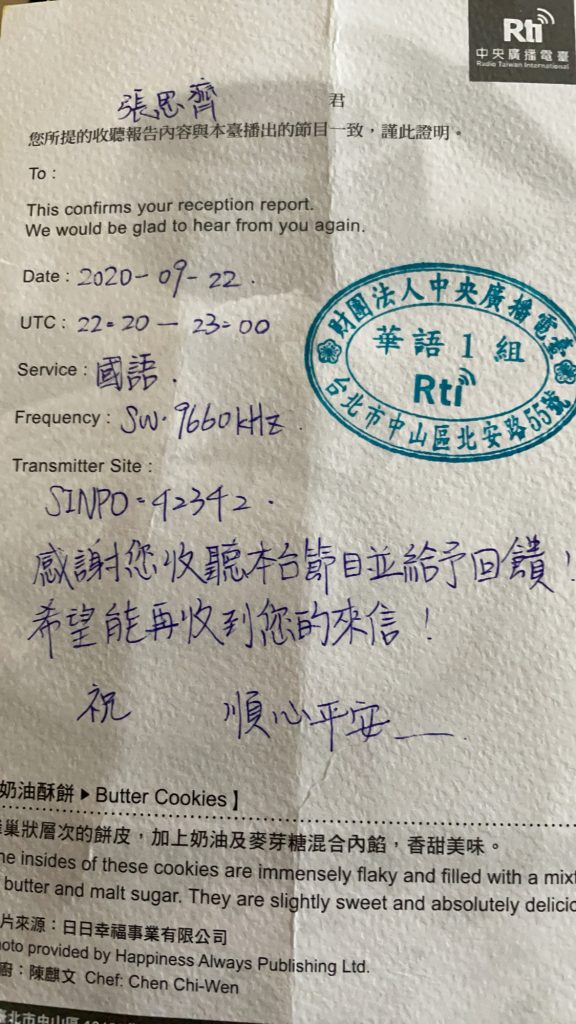 Rti
中央廣播電臺
Radio Taiwan International
張思齊 君
您所提的收聽報告內容與本臺播出的節目一致，謹此證明。
To :
This confirms your reception report.
We would be glad to hear from you again.
Date : 2020-09-22.
UTC : 22:20 — 23:00
Service : 國語.
Frequency : SW. 9660kHz
Transmitter Site :
SINPO=42342.
財團法人中央廣播電臺
華語1組
Rti
台北市中山區北安路55號
感謝您收聽本台節目並給予回饋！
希望能再收到您的來信！
祝 順心平安
奶油酥餅▶Butter Cookies】
巢狀層次的餅皮，加上奶油及麥芽糖混合內餡，香甜美味。
he insides of these cookies are immensely flaky and filled with a mixt
butter and malt sugar. They are slightly sweet and absolutely delicio
片來源：日日幸福事業有限公司
hoto provided by Happiness Always Publishing Ltd.
廚：陳麒文 Chef: Chen Chi-Wen
臺北市中山區